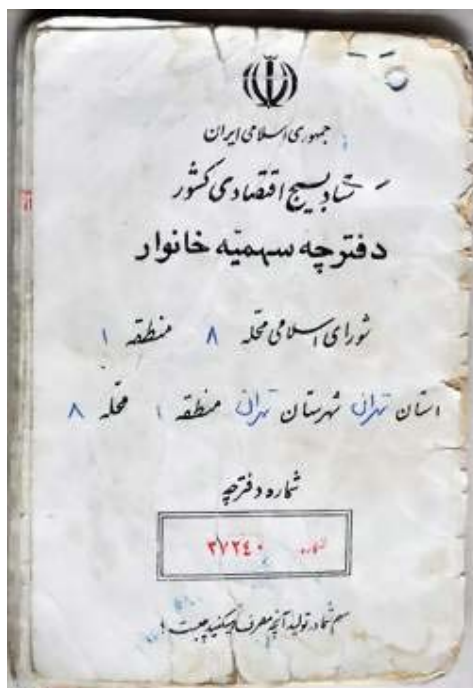 جمهوری اسلامی ایران
ستاد بسیج اقتصادی کشور
دفترچه سهمیّه خانوار
شورای اسلامی محله ۸ منطقه ۱
استان تهران شهرستان تهران منطقه ۱ محلّه ۸
شماره دفترچه
شماره ۳۷۲۴۰
سهم شما در تولید آنچه مصرف میکنید چیست ؟